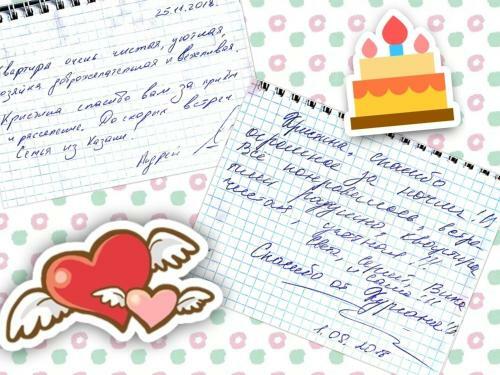 25.11.2018.
квартира очень чистая, уютная,
хозяйка доброжелательная и вежливая.
Кристина спасибо вам за приём
и расселение. До скорых встреч
Семья из Казани.
Андрей
Кристина, спасибо
огромное за ночлег!!!
Всё понравилось, встре-
тили радушно, квартира
чистая, уютная!!!
Сергей, Вика
и
Спасибо от Курганов!!!
1.05.2018